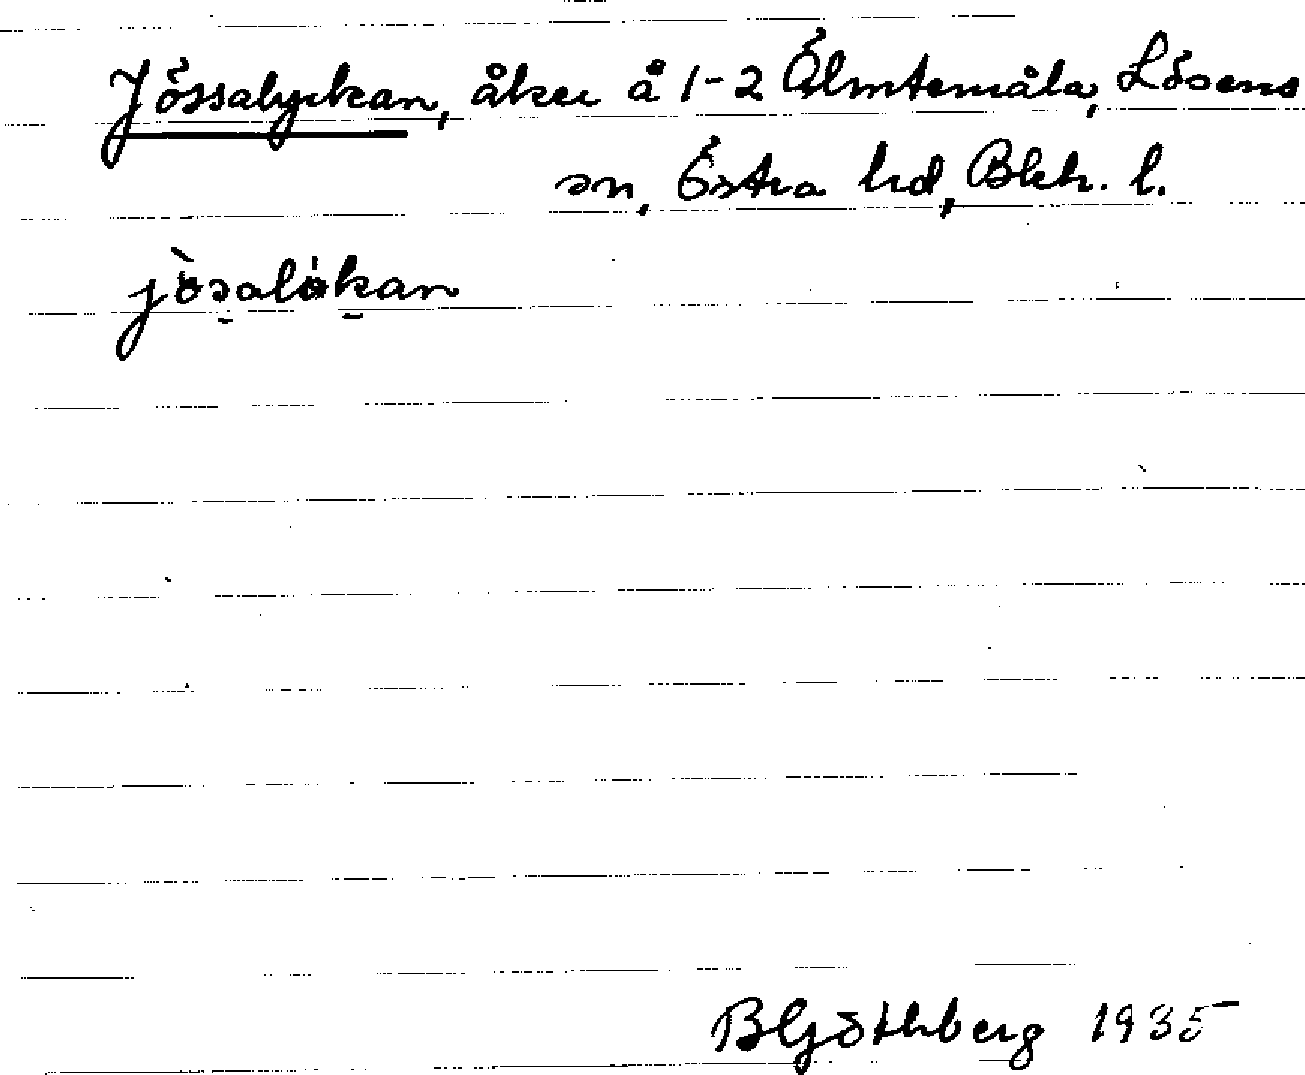 Jössalyckan, åker å 1-2 Ölmtemåla, Lösens
sn, Östra hd, Blek. l.
jòsalókan
BGöthberg 1935